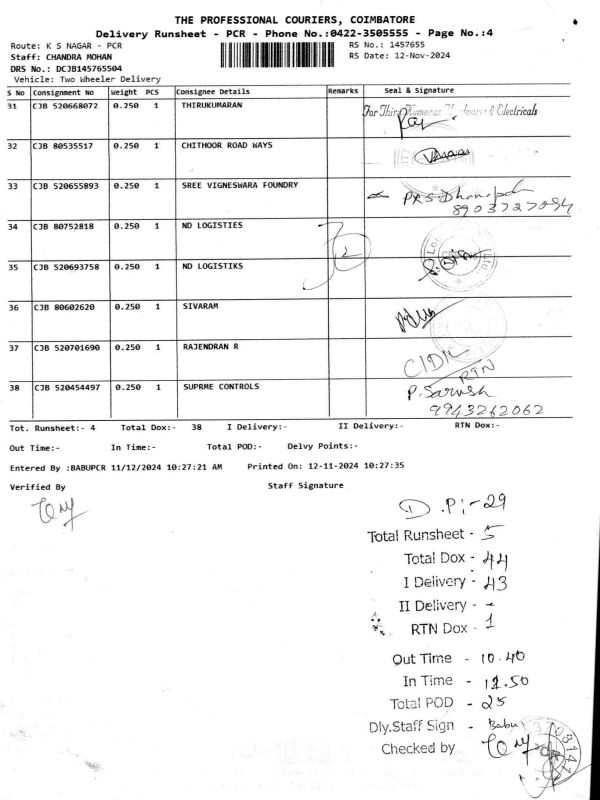 THE PROFESSIONAL COURIERS, COIMBATORE
Delivery Runsheet - PCR - Phone No.:0422-3505555 - Page No.:4
Route: K S NAGAR - PCR
RS No.: 1457655
Staff: CHANDRA MOHAN
RS Date: 12-Nov-2024
DRS No.: DCJB145765504
Vehicle: Two Wheeler Delivery
S No Consignment No Weight PCS Consignee Details Remarks Seal & Signature
31 CJB 520668072 0.250 1 THIRUKUMARAN
For Thiru Kumaran Hardware & Electricals
32 CJB 80535517 0.250 1 CHITHOOR ROAD WAYS
33 CJB 520655893 0.250 1 SREE VIGNESWARA FOUNDRY
8903727094
34 CJB 80752818 0.250 1 ND LOGISTIES
35 CJB 520693758 0.250 1 ND LOGISTIKS
36 CJB 80602620 0.250 1 SIVARAM
37 CJB 520701690 0.250 1 RAJENDRAN R
RTN
38 CJB 520454497 0.250 1 SUPRME CONTROLS P. Sarvesh
9943262062
Tot. Runsheet:- 4 Total Dox:- 38 I Delivery:- II Delivery:- RTN Dox:-
Out Time:- In Time:- Total POD:- Delvy Points:-
Entered By :BABUPCR 11/12/2024 10:27:21 AM Printed On: 12-11-2024 10:27:35
Verified By Staff Signature
D.P:- 29
Total Runsheet - 5
Total Dox - 44
I Delivery - 43
II Delivery - -
RTN Dox - 1
Out Time - 10.40
In Time - 12.50
Total POD - 25
Dly.Staff Sign - Babu
Checked by